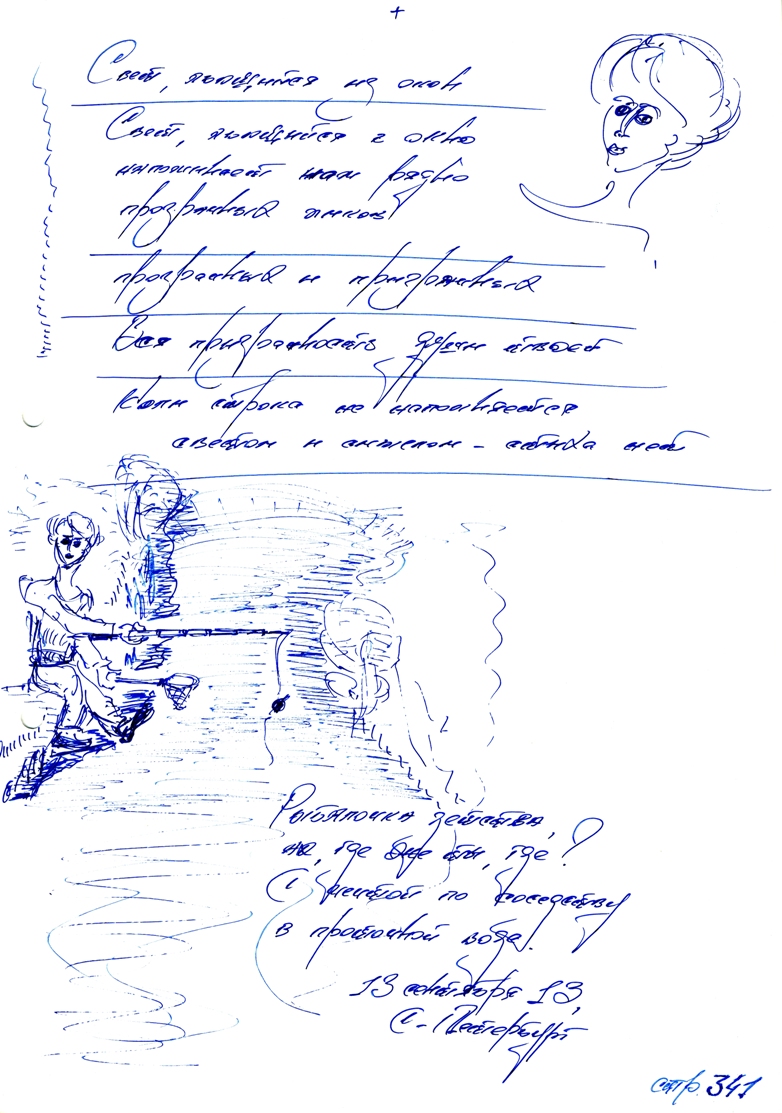 +
Свет, льющийся из окон
Свет, льющийся с окно
напоминает нам
прозрачных ликов
прозрачных и призрачных
Вся призрачность души твоей
Коли строка не наполняется
светом и смыслом - стиха нет
Рыбалочка детства,
но, где же ты, где?
С мечтой по соседству
в проточной воде.
13 сентября 13,
С-Петербург
стр. 341